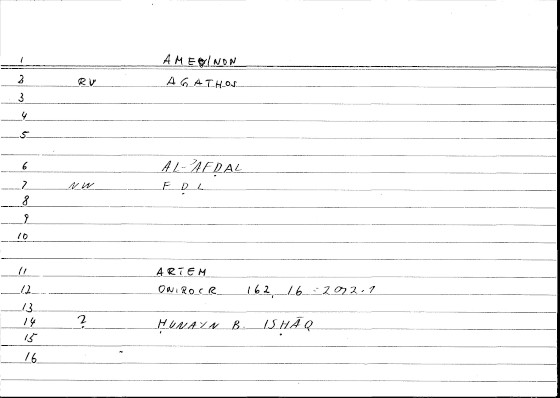 1 AMEINON
2 RV AGATHOS
3
4
5
6 AL-ʾAFḌAL
7 NW F Ḍ L
8
9
10
11 ARTEM
12 ONIROCR 162, 16 = 292.1
13
14 ? ḤUNAYN B. ISḤĀQ
15
16